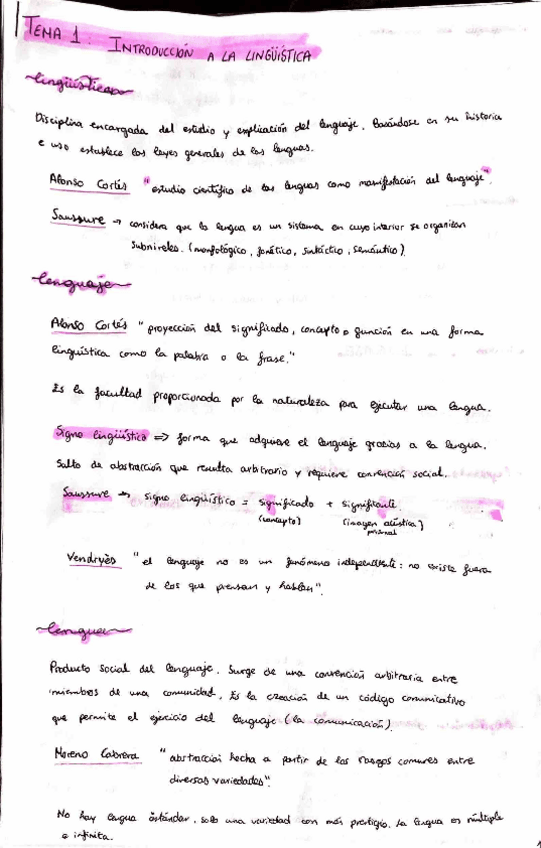 TEMA 1: INTRODUCCIÓN A LA LINGÜÍSTICA
Lingüística
Disciplina encargada del estudio y explicación del lenguaje. Basándose en su historia
e uso establece las leyes generales de las lenguas.
Alonso Cortés "estudio científico de las lenguas como manifestación del lenguaje"
Saussure → considera que la lengua es un sistema en cuyo interior se organizan
subniveles. (morfológico, fonético, sintáctico, semántico)
Lenguaje
Alonso Cortés "proyección del significado, concepto o función en una forma
lingüística como la palabra o la frase."
Es la facultad proporcionada por la naturaleza para ejecutar una lengua.
Signo lingüístico => forma que adquiere el lenguaje gracias a la lengua.
Salto de abstracción que resulta arbitrario y requiere convención social.
Saussure → signo lingüístico = significado + significante
(concepto) (imagen acústica)
Vendryès "el lenguaje no es un fenómeno independiente: no existe fuera
de los que piensan y hablan".
Lengua
Producto social del lenguaje. Surge de una convención arbitraria entre
miembros de una comunidad. Es la creación de un código comunicativo
que permite el ejercicio del lenguaje (la comunicación).
Moreno Cabrera "abstracción hecha a partir de los rasgos comunes entre
diversas variedades".
No hay lengua estándar, solo una variedad con más prestigio. La lengua es múltiple
e infinita.